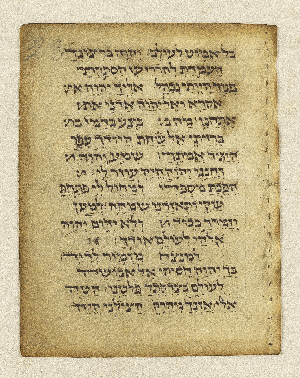 בל אמוט לעולם יהוה ברצונך
העמדת להררי עז הסתרת
פניך הייתי נבהל אליך יהוה
אקרא ואל יהוה אדני
בצע בדמי
ברדתי אל שחת היודך עפר
היגיד אמיתך שמע יהוה
וחנני יהוה היה עזר לי
הפכת מספדי למחול לי פתחת
שקי ותאזרני שמחה למען
יזמרך כבוד ולא ידום יהוה
אלהי לעולם אודך
למנצח מזמור לדוד
בך יהוה חסיתי אל אבושה
לעולם בצדקתך פלטני הטה
אלי אזנך מהרה הצילני היה